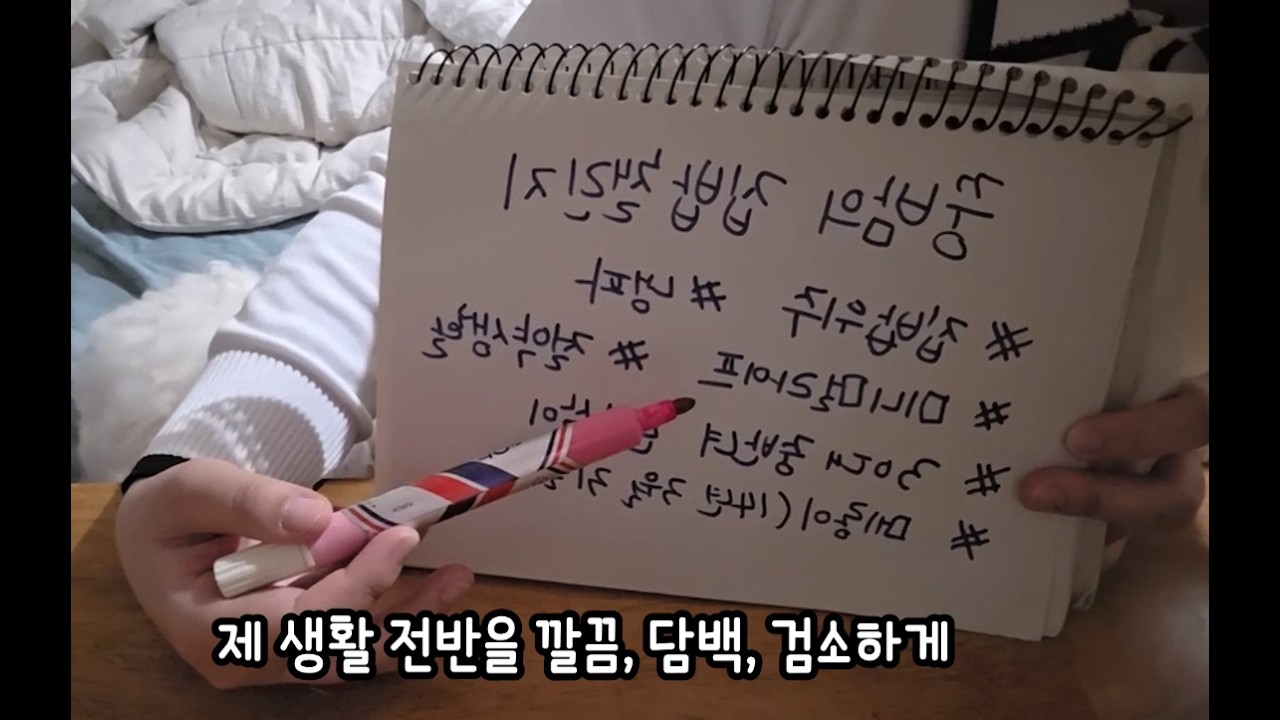 집밥챌린지
# 집밥위주 # 냉파
# 미니멀라이프 # 절약생활
# 30대 중반녀
# 메롱이 (14년 3월
제 생활 전반을 깔끔, 담백, 검소하게